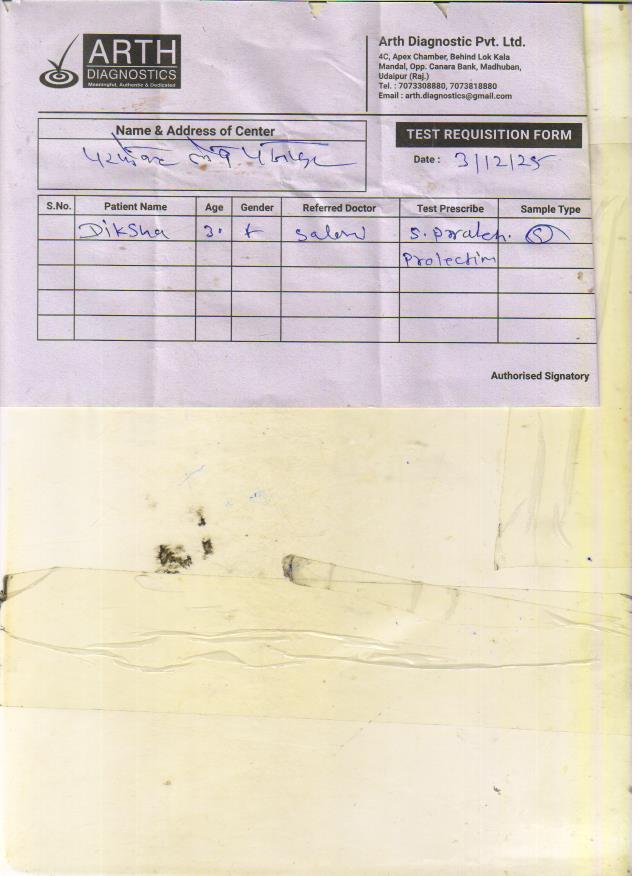 ARTH
DIAGNOSTICS
Meaningful, Authentic & Dedicated
Arth Diagnostic Pvt. Ltd.
4C, Apex Chamber, Behind Lok Kala
Mandal, Opp. Canara Bank, Madhuban,
Udaipur (Raj.)
Tel. : 7073308880, 7073818880
Email : arth.diagnostics@gmail.com
Name & Address of Center
TEST REQUISITION FORM
Date : 3/12/25
S.No. Patient Name Age Gender Referred Doctor Test Prescribe Sample Type
Diksha 30 S. (S)
Prolectin
Authorised Signatory